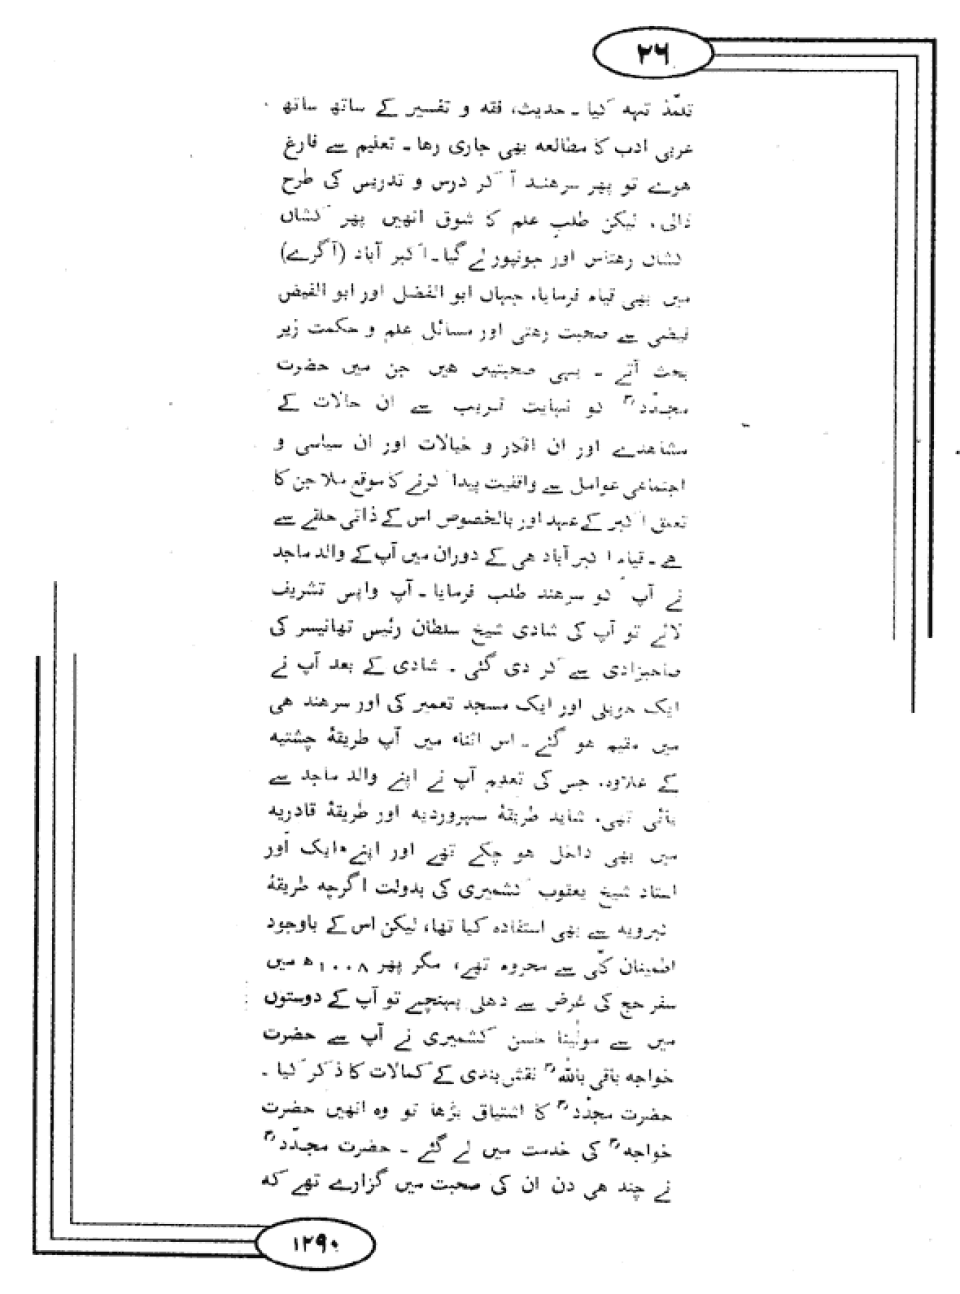 ۲۶
تلمّذ تہہ کیا ـ حدیث، فقه و تفسیر کے ساتھ ساتھ
عربی ادب کا مطالعه بھی جاری رها ـ تعلیم سے فارغ
هوے تو پھر سرهند آ کر درس و تدریس کی طرح
ڈالی، لیکن طلبِ علم کا شوق انھیں پھر کشاں
کشاں رهتاس اور جونپور لے گیا ـ اکبر آباد (آگرے)
میں بھی قیام فرمایا، جہاں ابو الفضل اور ابو الفیض
فیضی سے صحبت رهتی اور مسائل علم و حکمت زیر
بحث آتے ـ یہی صحبتیں هیں جن میں حضرت
مجدّدؒ کو نہایت قریب سے ان حالات کے
مشاهدے اور ان افکار و خیالات اور ان سیاسی و
اجتماعی عوامل سے واقفیت پیدا کرنے کا موقع ملا جن کا
تعلق اکبر کے عہد اور بالخصوص اس کے ذاتی حلقے سے
هے ـ قیام اکبر آباد هی کے دوران میں آپ کے والد ماجد
نے آپ کو سرهند طلب فرمایا ـ آپ واپس تشریف
لائے تو آپ کی شادی شیخ سلطان رئیس تھانیسر کی
صاحبزادی سے کر دی گئی ـ شادی کے بعد آپ نے
ایک حویلی اور ایک مسجد تعمیر کی اور سرهند هی
میں مقیم هو گئے ـ اس اثناء میں آپ طریقهٔ چشتیه
کے علاوہ، جس کی تعلیم آپ نے اپنے والد ماجد سے
پائی تھی، شاید طریقهٔ سہروردیه اور طریقهٔ قادریه
میں بھی داخل هو چکے تھے اور اپنے ایک اَور
استاد شیخ یعقوب کشمیری کی بدولت اگرچه طریقهٔ
کبرویه سے بھی استفاده کیا تھا، لیکن اس کے باوجود
اطمینان کلّی سے محروم تھے، مگر پھر ۱۰۰۸ھ میں
سفر حج کی غرض سے دهلی پہنچے تو آپ کے دوستوں
میں سے مولٰینا حسن کشمیری نے آپ سے حضرت
خواجه باقی باللهؒ نقش بندی کے کمالات کا ذکر کیا ـ
حضرت مجدّدؒ کا اشتیاق بڑھا تو وہ انھیں حضرت
خواجهؒ کی خدمت میں لے گئے ـ حضرت مجدّدؒ
نے چند هی دن ان کی صحبت میں گزارے تھے که
۱۲۹۰